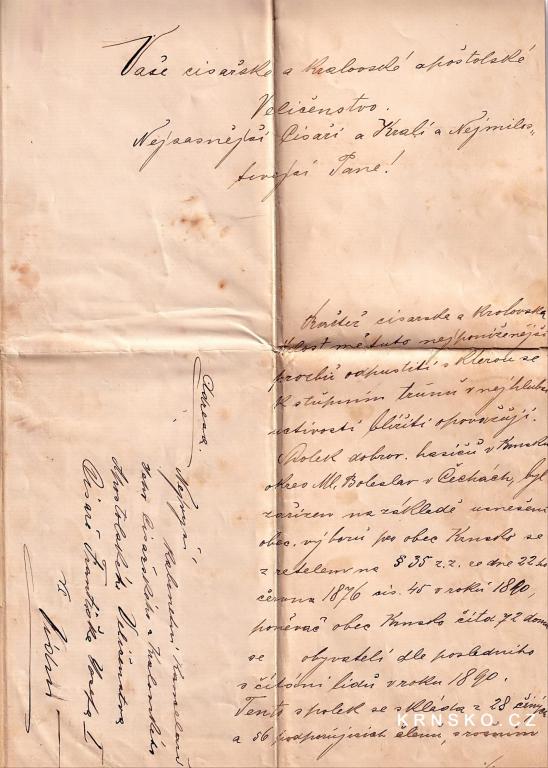 Vaše cisařske a Kralovské apoštolské
Veličenstvo.
Nejjasnější Císaři a Králi a Nejmilos„
tivejsi Pane!
cisarska a Krolovska
tuto nejponíženější
prosbu odpustiti s kterou se
K stupnim trůnu v nejhlubš
uctivosti blížiti opovažuji.
Spolek dobrov. hasičů v Krnsku
okres Ml. Boleslav v Čechách, byl
zařízen na základě usnešení
obec. výborů pro obec Krnsko se
zretelem na § 35 z.z. ze dne 22ho
června 1876 cis. 45 v roků 1890,
poněvač obec Krnsko čítá 72 domů
se obyvatelí dle posledniho
sčitání lidů v roku 1890.
Tento spolek se skláda z 28 činých
a 56 podporujicich členu, srovním
Adresa.
Nejvyší Kabinetní Kanceláří
Jeho Cisařského a Kralovského
Apoštolského Veličenstva
Císaře Františka Josefa I
Ve
Vídni
KRNSKO.CZ